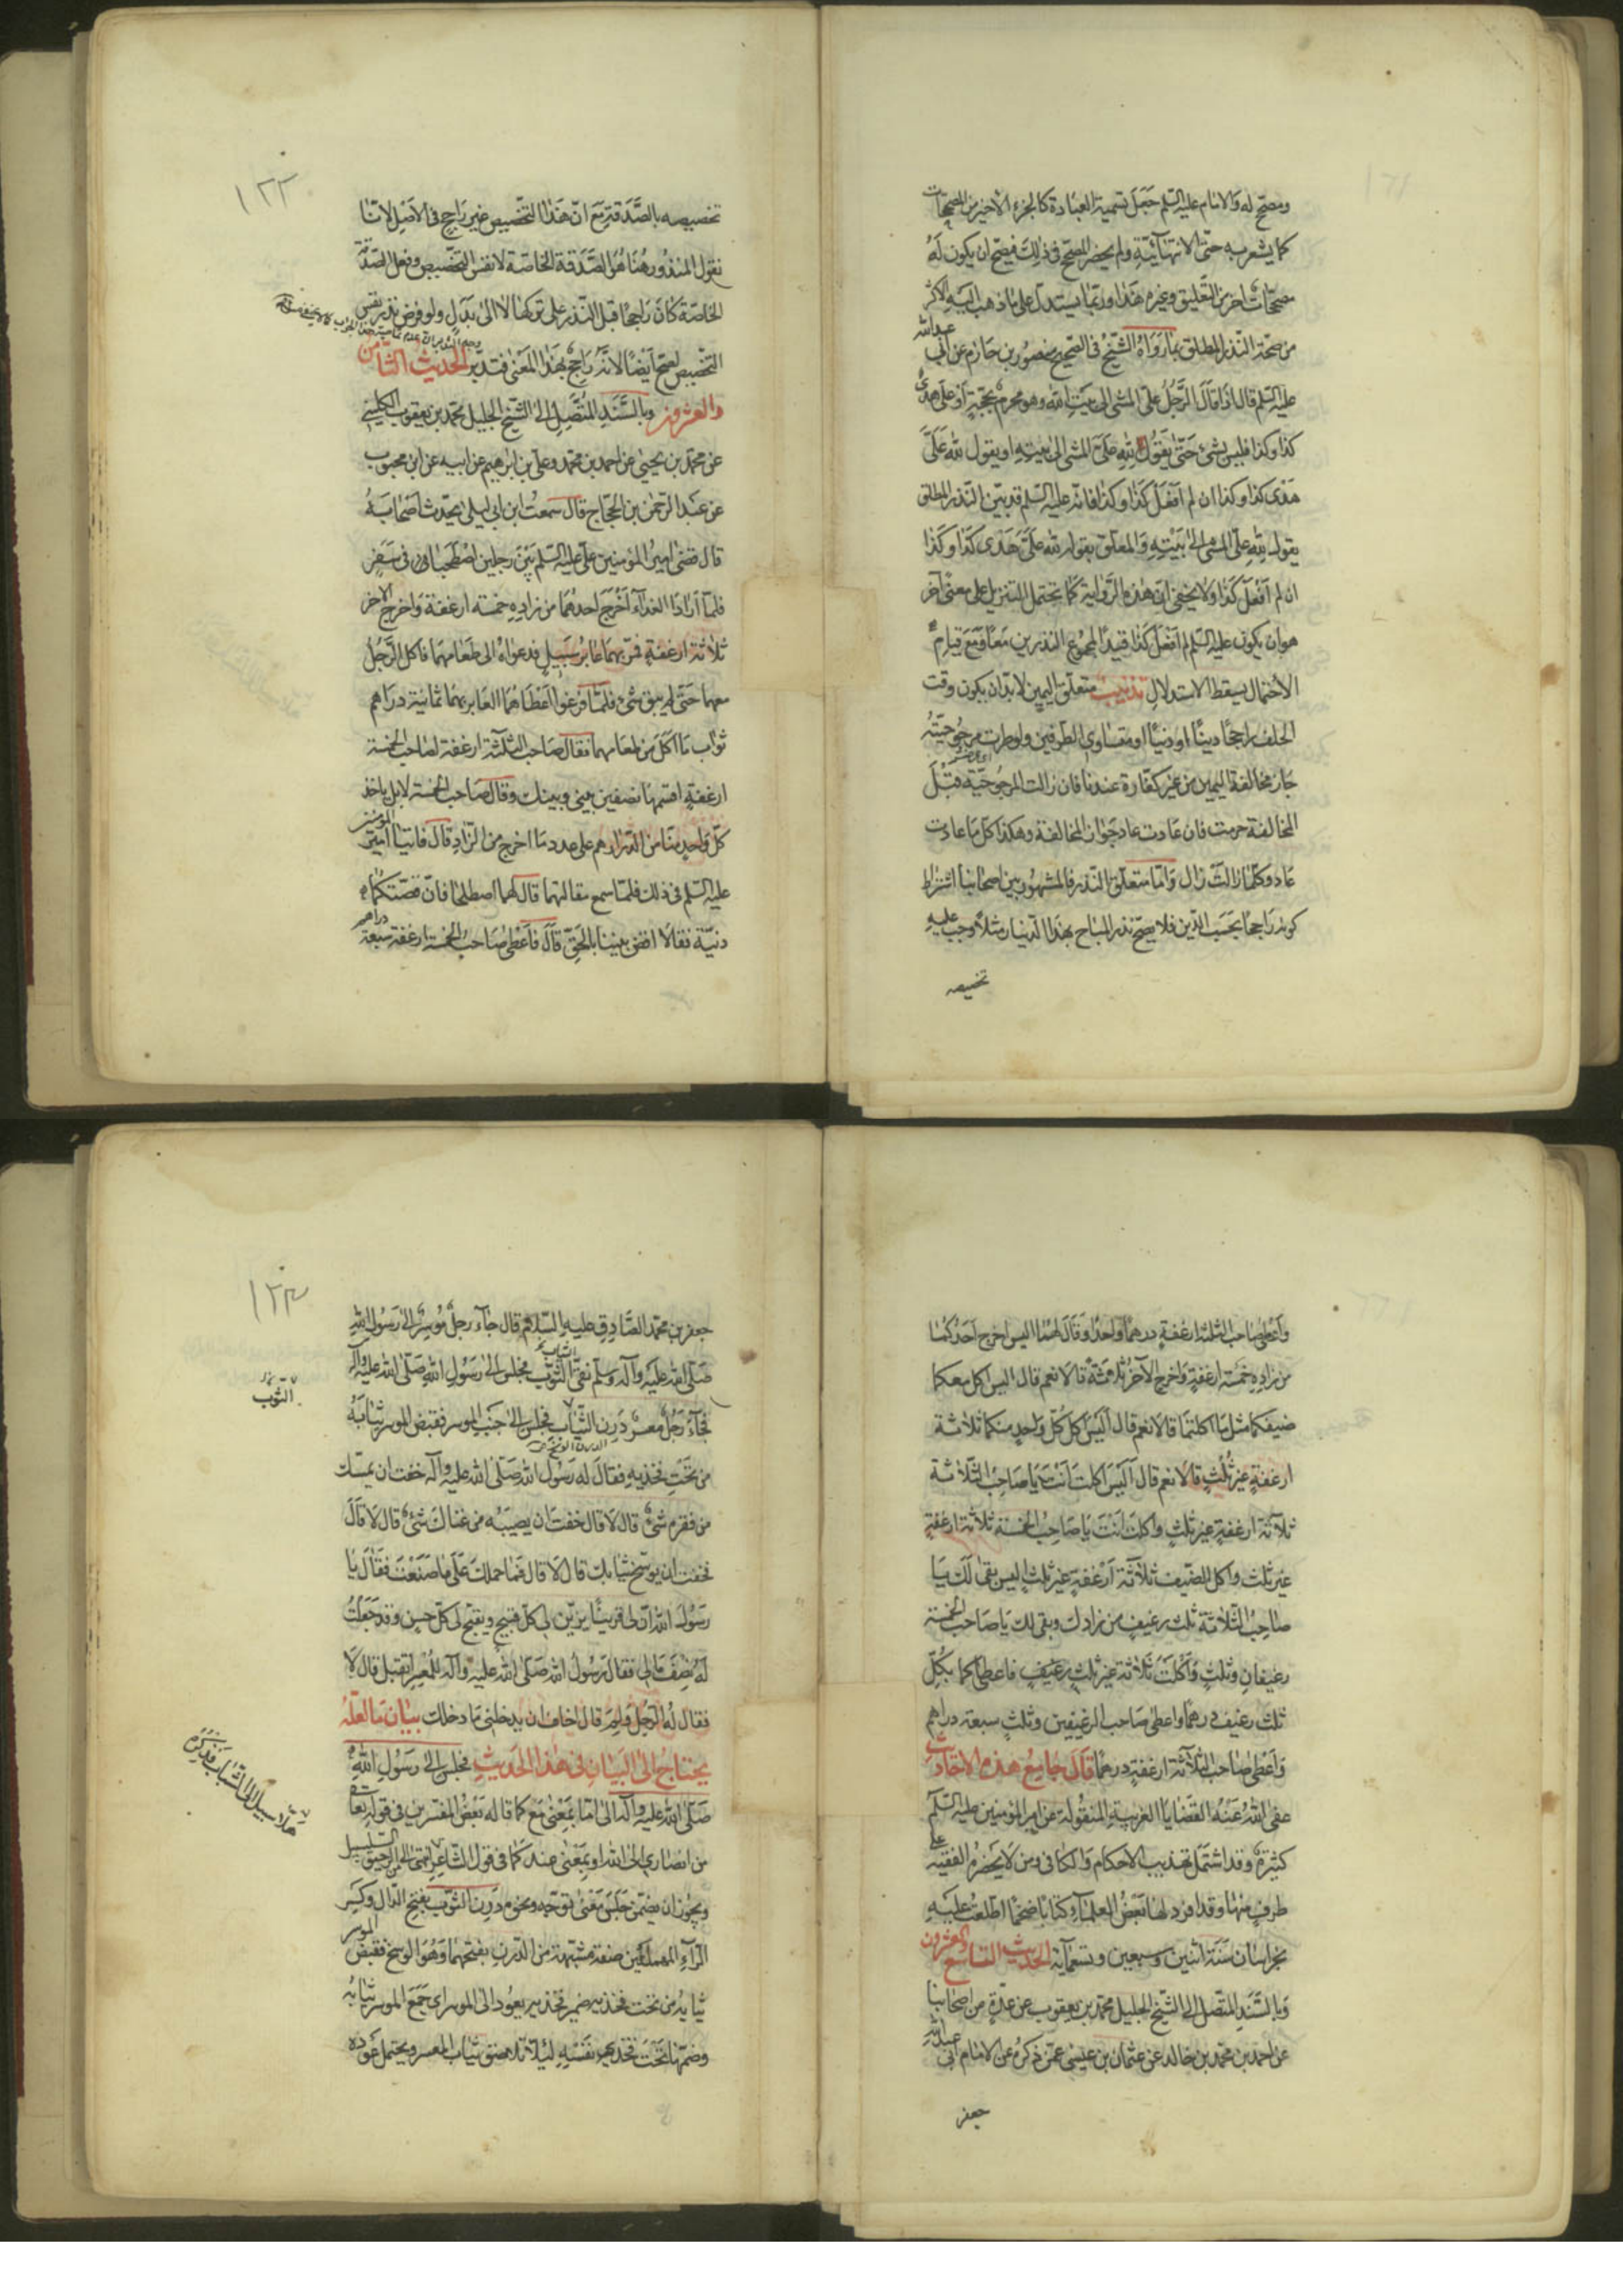 ومصحح له والامام عليه السلم جعل تسمية العبادة كالجزء الاخير من المصححات
كما يشعر به حتى الانتهائية ولم يحصر المصحح في ذلك فيصح ان يكون له
مصححات اخر من التعليق وغيره هذا وربما يستدل على ما ذهب اليه الاكثر
من صحة النذر المطلق بما رواه الشيخ في الصحيح منصور بن حازم عن ابي عبد الله
عليه السلم قال اذا قال الرجل على المشي الى بيت الله وهو محرم بحجة او على هدى
كذا وكذا فليس بشئ حتى يقول لله على المشي الى بيته او يقول لله على
هدى كذا وكذا ان لم افعل كذا وكذا فانه عليه السلم قد بين النذر المطلق
بقوله لله على المشى الى بيته والمعلق بقوله لله على هدى كذا وكذا
ان لم افعل كذا ولا يخفى ان هذه الرواية كما تحتمل التنزيل على معنى آخر
هو ان يكون عليه السلم لم افعل كذا قيدا لمجموع النذرين معا فمع قيام
الاحتمال يسقط الاستدلال تذنيب متعلق اليمين لا بد ان يكون وقت
الحلف راجحا دينا او دنيا او متساوي الطرفين ولو طرت مرجوحيته
جاز مخالفة اليمين من غير كفارة عندنا فان زالت المرجوحية قبل
المخالفة حرمت فان عادت عاد جواز المخالفة وهكذا كل ما عادت
عاد وكلما زالت زال واما متعلق النذر فالمشهور بين اصحابنا اشتراط
كونه راجحا بحسب الدين فلا يصح نذر المباح بهذا الدينار مثلا وجب عليه
تخصيصه
١٢٢
تخصيصه بالصدقة مع ان هذا التخصيص غير راجح في الاصل لانا
نقول المنذور هنا هو الصدقة الخاصة لا نفس التخصيص وفعل الصدقة
الخاصة كان راجحا قبل النذر على تركها لا الى بدل ولو فرض نذر نفس
التخصيص لصح ايضا لانه راجح بهذا المعنى فتدبر الحديث الثامن
والعشرون وبالسند المتصل الى الشيخ الجليل محمد بن يعقوب الكليني
عن محمد بن يحيى عن احمد بن محمد وعلي بن ابرهيم عن ابيه عن ابن محبوب
عن عبد الرحمن بن الحجاج قال سمعت ابن ابي ليلى يحدث اصحابه
قال قضى امير المؤمنين على عليه السلم بين رجلين اصطحبا في سفر
فلما ارادا الغداء اخرج احدهما من زاده خمسة ارغفة واخرج الاخر
ثلاثة ارغفة فمر بهما عابر سبيل فدعواه الى طعامهما فاكل الرجل
معهما حتى لم يبق شئ فلما فرغوا اعطاهما العابر بهما ثمانية دراهم
ثواب ما اكل من طعامهما فقال صاحب الثلثة ارغفة لصاحب الخمسة
ارغفة اقسمها نصفين بيني وبينك وقال صاحب الخمسة لا بل ياخذ
كل واحد منا من الدراهم على عدد ما اخرج من الزاد قال فاتيا امير المؤمنين
عليه السلم في ذلك فلما سمع مقالتهما قال لهما اصطلحا فان قضيتكما
دنية فقالا اقض بيننا بالحق قال فاعطى صاحب الخمسة ارغفة سبعة دراهم
واعطى صاحب الثلثة ارغفة درهما واحدا وقال لهما اليس اخرج احدكما
من زاده خمسة ارغفة واخرج الآخر ثلاثة قالا نعم قال اليس اكل معكما
ضيفكما مثل ما اكلتما قالا نعم قال اليس اكل كل واحد منكما ثلاثة
ارغفة غير ثلث قالا نعم قال اليس اكلت انت يا صاحب الثلاثة
ثلاثة ارغفة غير ثلث واكلت انت يا صاحب الخمسة ثلاثة ارغفة
غير ثلث واكل الضيف ثلاثة ارغفة غير ثلث اليس بقى لك يا
صاحب الثلاثة ثلث رغيف من زادك وبقى لك يا صاحب الخمسة
رغيفان وثلث واكلت ثلاثة غير ثلث رغيف فاعطاكما بكل
ثلث رغيف درهما واعطى صاحب الرغيفين وثلث سبعة دراهم
واعطى صاحب الثلاثة ارغفة درهما قال جامع هذه الاحاديث
عفى الله عنه القضايا الغريبة المنقولة عن امير المؤمنين عليه السلم
كثيرة وقد اشتمل تهذيب الاحكام والكافي ومن لا يحضره الفقيه على
طرف منها وقد افرد لها بعض العلماء كتابا ضخما اطلعت عليه
بخراسان سنة اثنين وسبعين وتسعمائة الحديث التاسع والعشرون
وبالسند المتصل الى الشيخ الجليل محمد بن يعقوب عن عدة من اصحابنا
عن احمد بن محمد بن خالد عن عثمان بن عيسى عمن ذكره عن الامام ابي عبد الله
جعفر
١٢٣
جعفر بن محمد الصادق عليه السلام قال جاء رجل موسر الى رسول الله
صلى الله عليه وآله وسلم نقي الثوب فجلس الى رسول الله صلى الله عليه وآله
الثياب
الثوب
فجاء رجل معسر درن الثياب فجلس الى جنب الموسر فقبض الموسر ثيابه
الدرن الوسخ
من تحت فخذيه فقال له رسول الله صلى الله عليه وآله خفت ان يمسك
من فقره شئ قال لا قال خفت ان يصيبه من غناك شئ قال لا قال
فخفت ان يوسخ ثيابك قال لا قال فما حملك على ما صنعت فقال يا
رسول الله ان لي قرينا يزين لي كل قبيح ويقبح لي كل حسن وقد جعلت
له نصف مالي فقال رسول الله صلى الله عليه وآله للمعسر اتقبل قال لا
فقال له الرجل ولم قال اخاف ان يدخلني ما دخلك بيان ما لعله
يحتاج الى البيان في هذا الحديث فجلس الى رسول الله
صلى الله عليه وآله الى اما بمعنى مع كما قاله بعض المفسرين في قوله تعالى
من انصاري الى الله او بمعنى عند كما في قول الشاعر اشهى الي من الرحيق السلسل
ويجوز ان يضمن جلس معنى توجه ونحوه درن الثوب بفتح الدال وكسر
الراء المهملتين صفة مشبهة من الدرن بفتحهما وهو الوسخ فقبض الموسر
ثيابه من تحت فخذيه ضمير فخذيه يعود الى الموسر اى جمع الموسر ثيابه
وضمها تحت فخذي نفسه لئلا تلاصق ثياب المعسر ويحتمل عوده